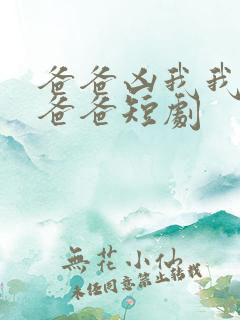 爸爸凶我我
爸爸短劇
無花小仙
未經同意禁止轉載